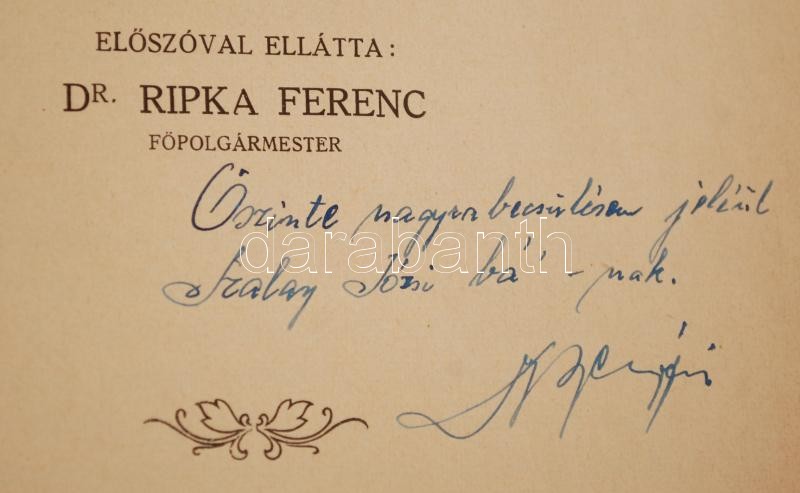 ELŐSZÓVAL ELLÁTTA:
DR. RIPKA FERENC
FŐPOLGÁRMESTER
Őszinte nagyrabecsülésem jeléül
darabanth
Szalay Józsi bá'-nak.